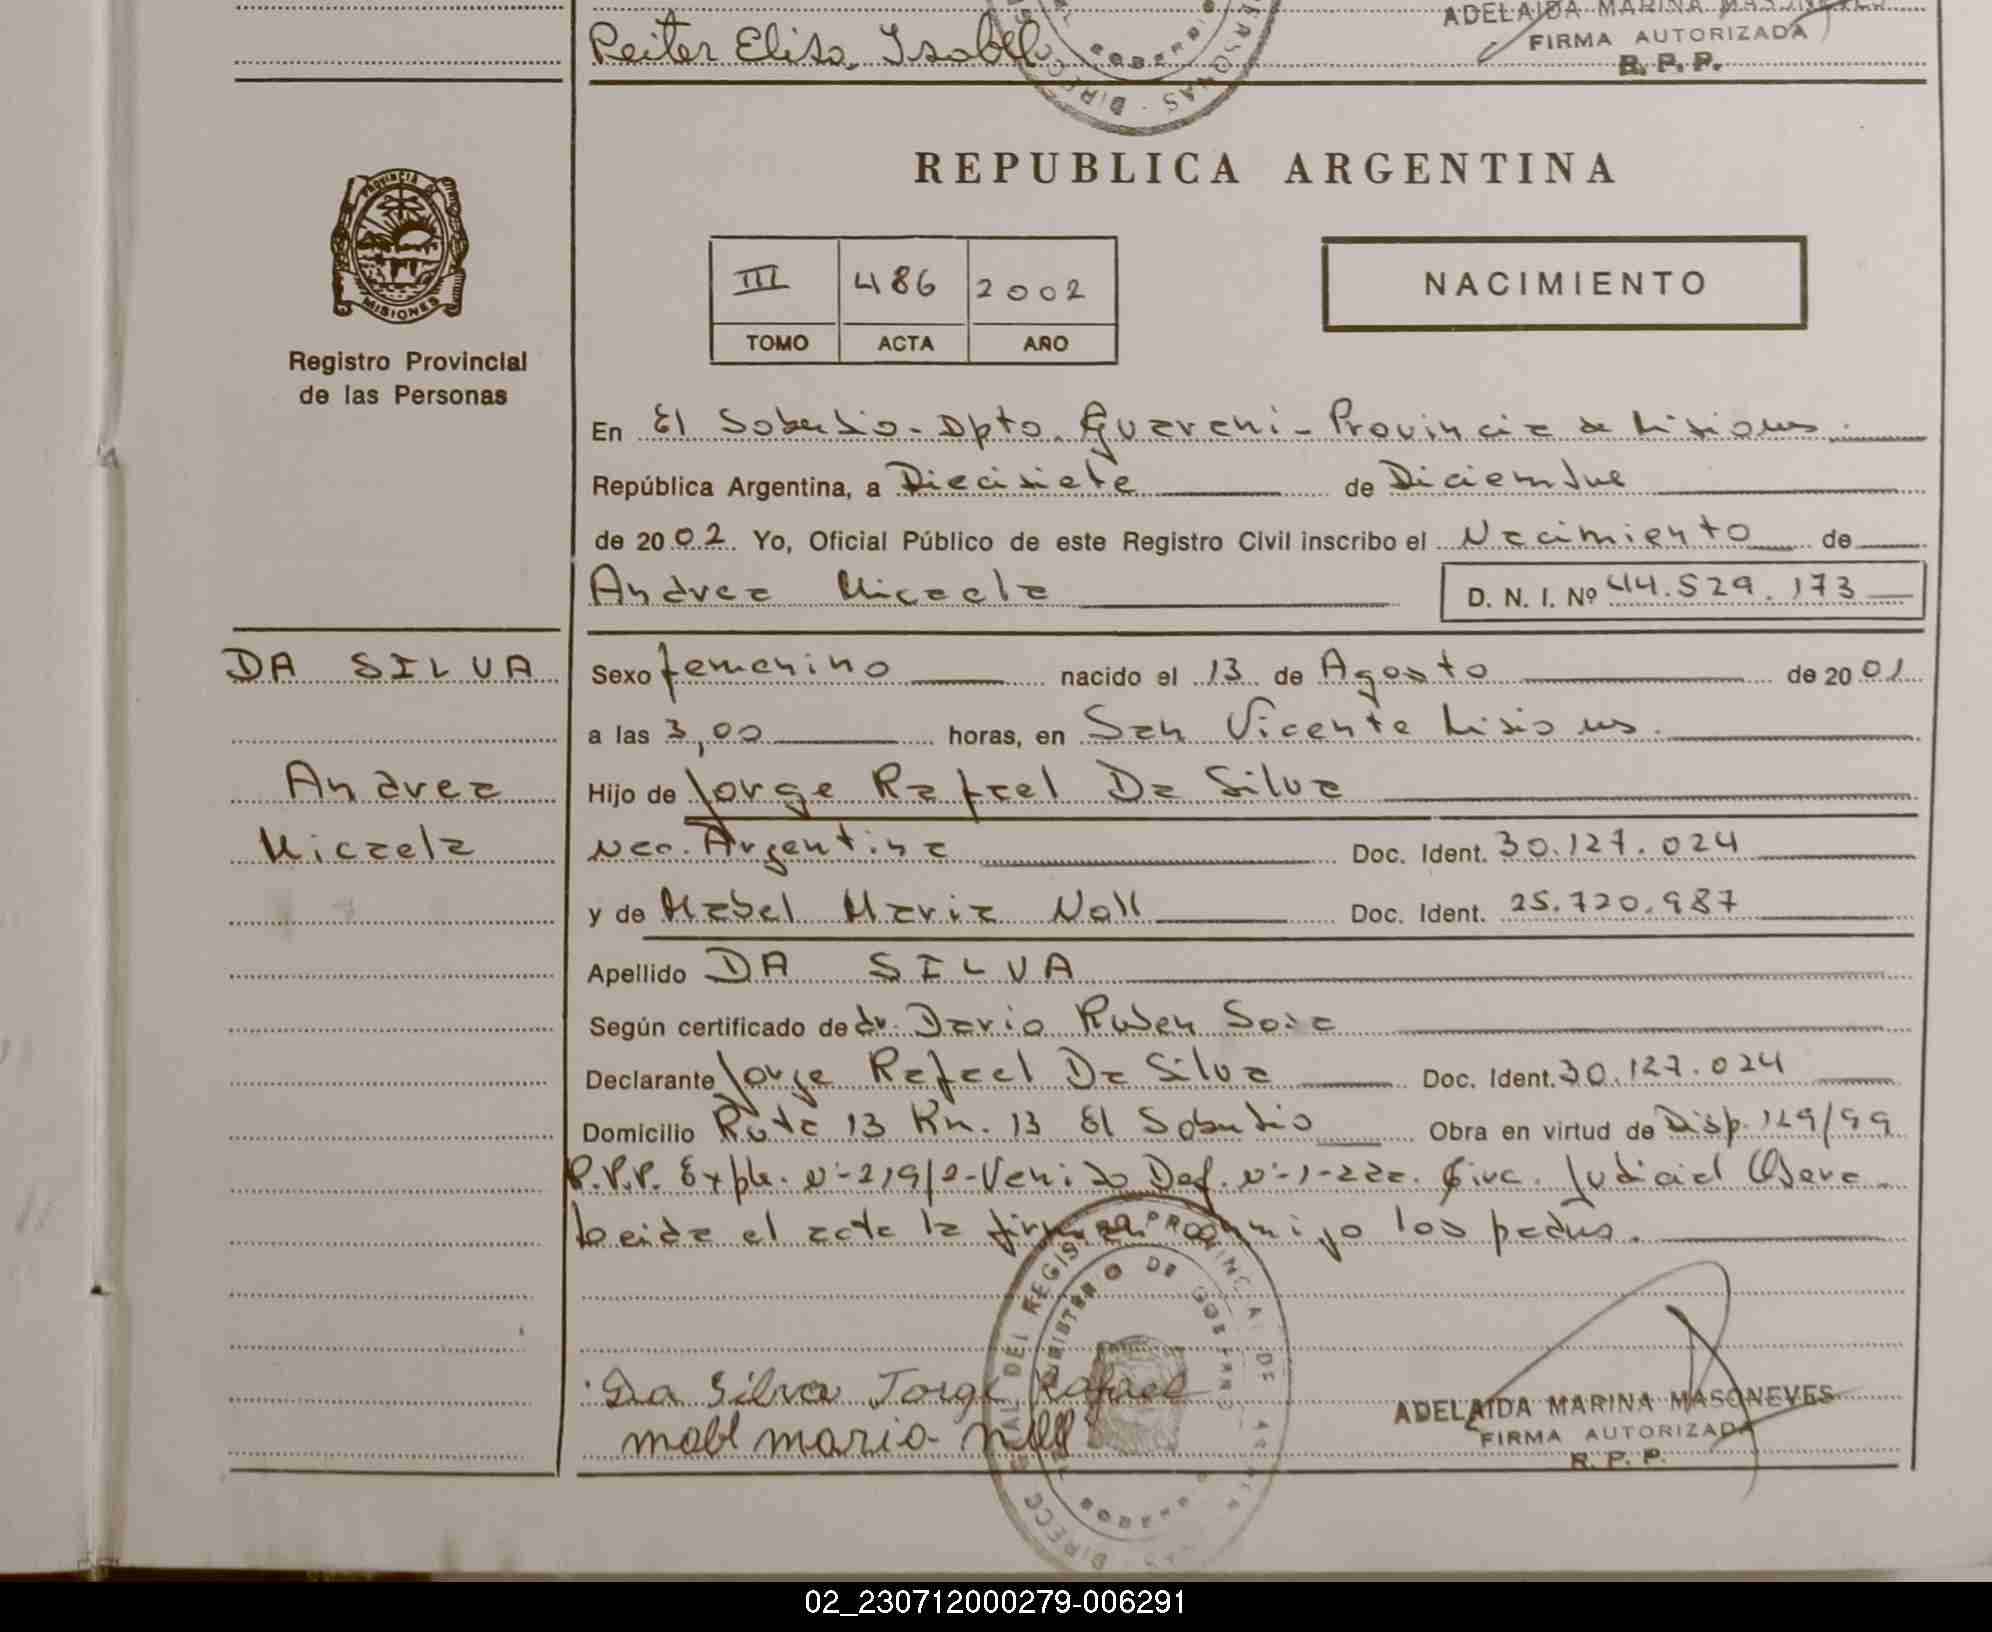 Reiter Elisa Isabel
ADELAIDA MARINA MASONEVES
FIRMA AUTORIZADA
R. P. P.
PROVINCIA DE
MISIONES
Registro Provincial
de las Personas
REPUBLICA ARGENTINA
III 486 2002
TOMO ACTA AÑO
NACIMIENTO
En El Soberbio - Dpto. Guarani - Provincia de Misiones.
República Argentina, a Diecisiete de Diciembre
de 2002. Yo, Oficial Público de este Registro Civil inscribo el Nacimiento de
Andrea Micaela D. N. I. Nº 44.529.173
DA SILVA
Andrea
Micaela
Sexo femenino nacido el 13 de Agosto de 2001
a las 3,00 horas, en San Vicente Misiones.
Hijo de Jorge Rafael Da Silva
nac. Argentina Doc. Ident. 30.127.024
y de Mabel Maria Noll Doc. Ident. 25.720.987
Apellido DA SILVA
Según certificado de dr. Dario Ruben Sosa
Declarante Jorge Rafael Da Silva Doc. Ident. 30.127.024
Domicilio Ruta 13 Km. 13 El Soberbio Obra en virtud de Disp. 129/99
R.P.P. Expte. Nº 219/2 - Venido Def. Nº 1 - 2da. Circ. Judicial Obera.
Leida el acta la firman conmigo los padres.
Da Silva Jorge Rafael
mabl maria noll
ADELAIDA MARINA MASONEVES
FIRMA AUTORIZADA
R. P. P.
02_230712000279-006291